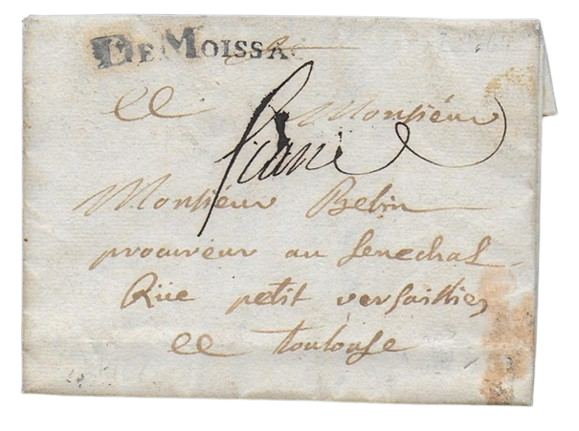 DE MOISSA
A Monsieur
franc
Monsieur Belin
procureur au senechal
Rüe petit versailles
A Toulouse